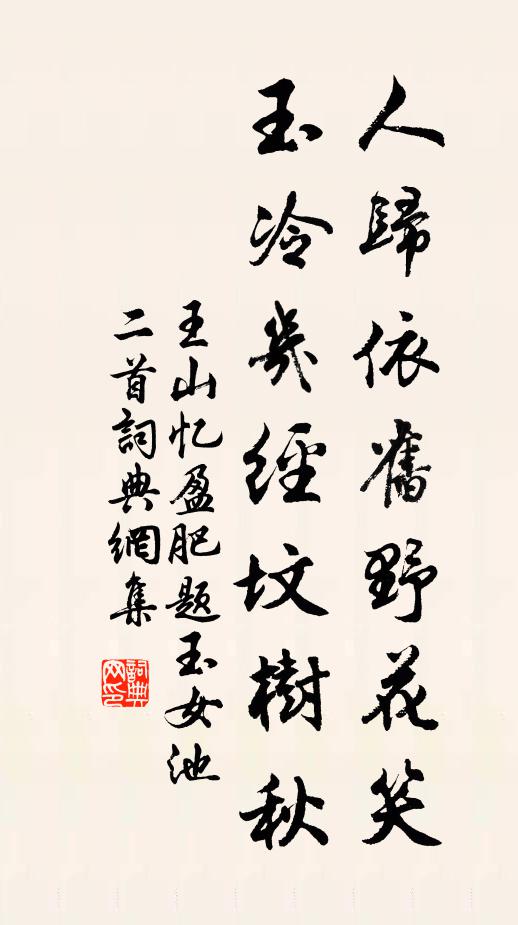 人歸依舊野花笑
玉冷幾經墳樹秋
王山忆盈肥题玉女池
二首詞典網集
詞典网印